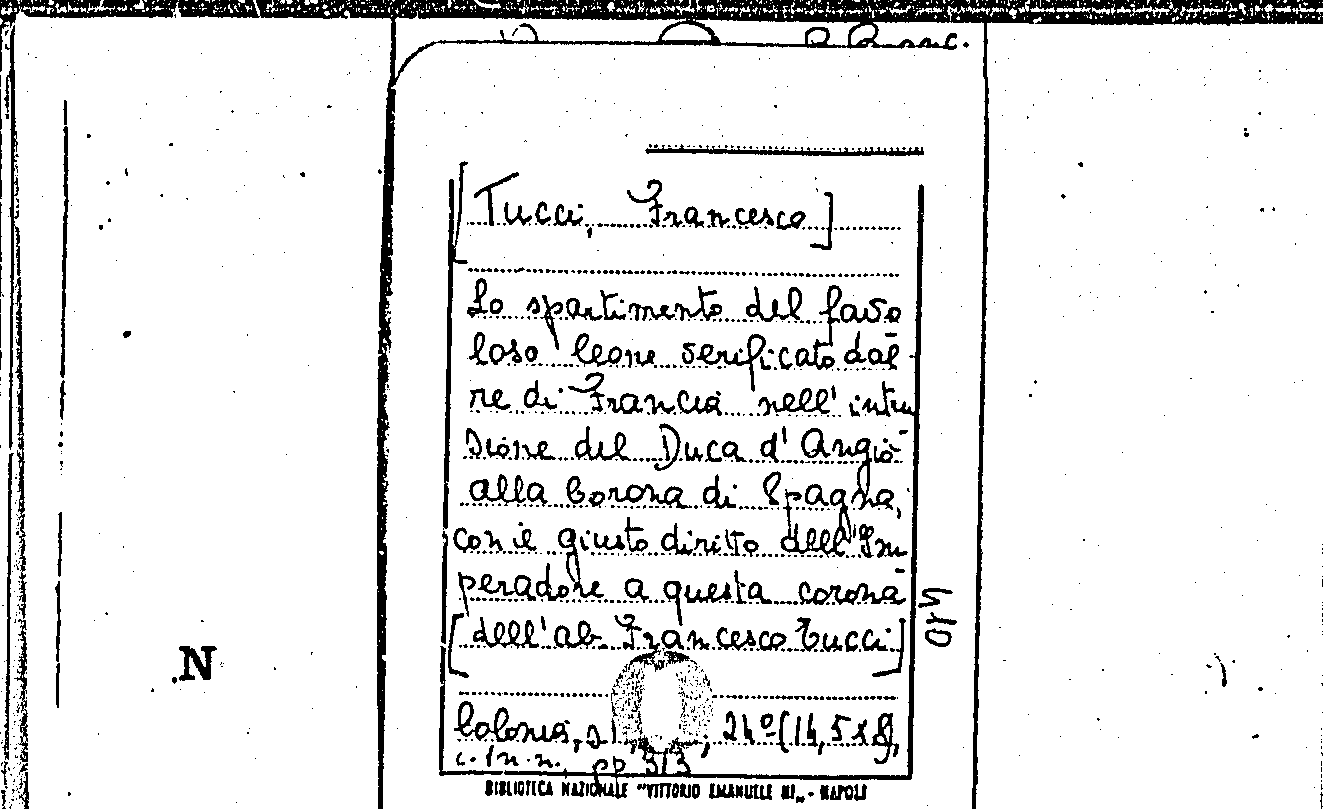 [Tucci, Francesco]
Lo spartimento del favo
loso leone verificato dal
re di Francia nell'intru
sione del Duca d'Angiò
alla Corona di Spagna,
con il giusto diritto dell'Im
peradore a questa corona
[dell'ab. Francesco Tucci]
Colonia, 24º (14,5x8),
c. 1 n.n., pp 313
BIBLIOTECA NAZIONALE "VITTORIO EMANUELE III" - NAPOLI
.N